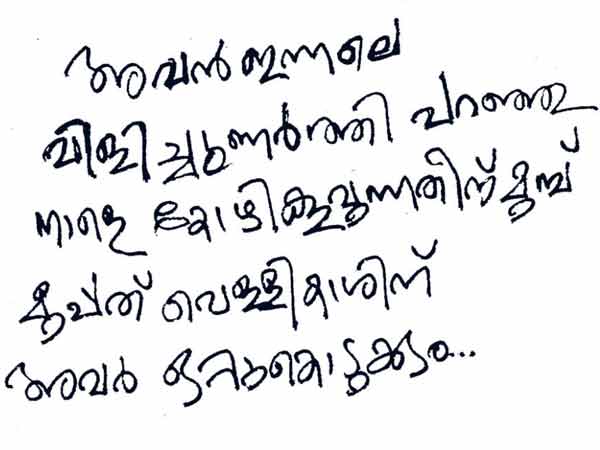 അവൻ ഇന്നലെ
വിളിച്ചുണർത്തി പറഞ്ഞു
നാളെ കോഴികൂവുന്നതിന് മുമ്പ്
മുപ്പത് വെള്ളികാശിന്
അവർ ഒറ്റുകൊടുക്കും...